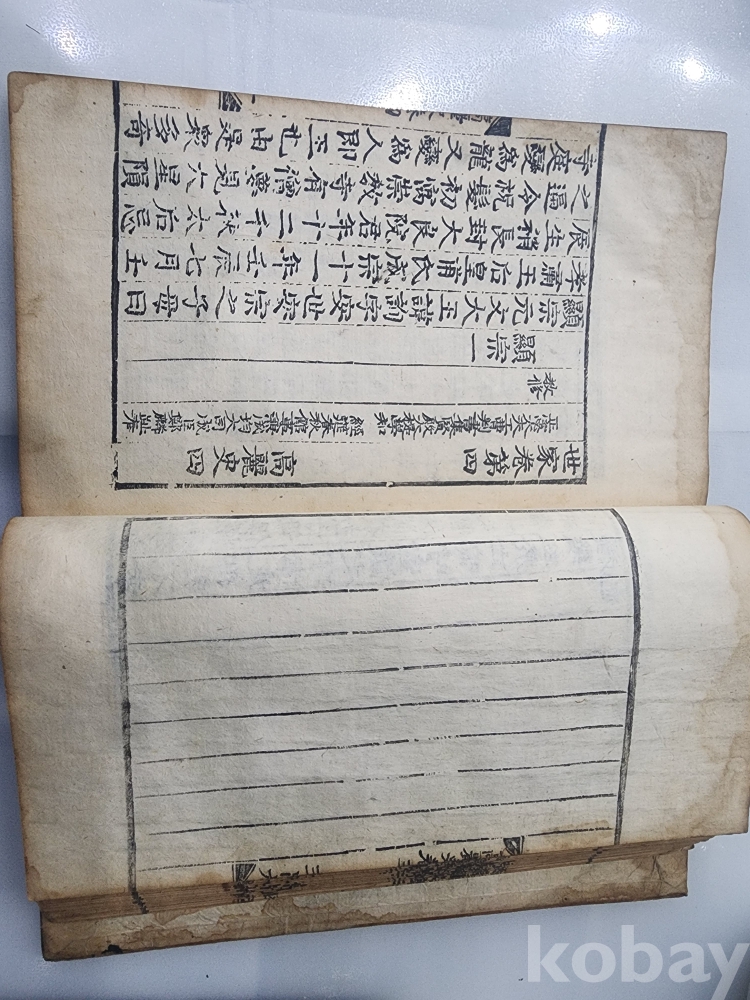 世家卷第四 高麗史四
正憲大夫工曹判書集賢殿大提學知
經筵春秋館事兼成均大司成臣鄭麟趾奉
敎修
顯宗一
顯宗元文大王諱詢字安世安宗之子母曰
孝肅王后皇甫氏成宗十一年壬辰七月壬
辰生稍長封大良院君年十二千秋太后忌
之逼令祝髮初寓崇敎寺有僧夢見大星隕
寺庭變爲龍又變爲人卽王也由是衆多奇
kobay